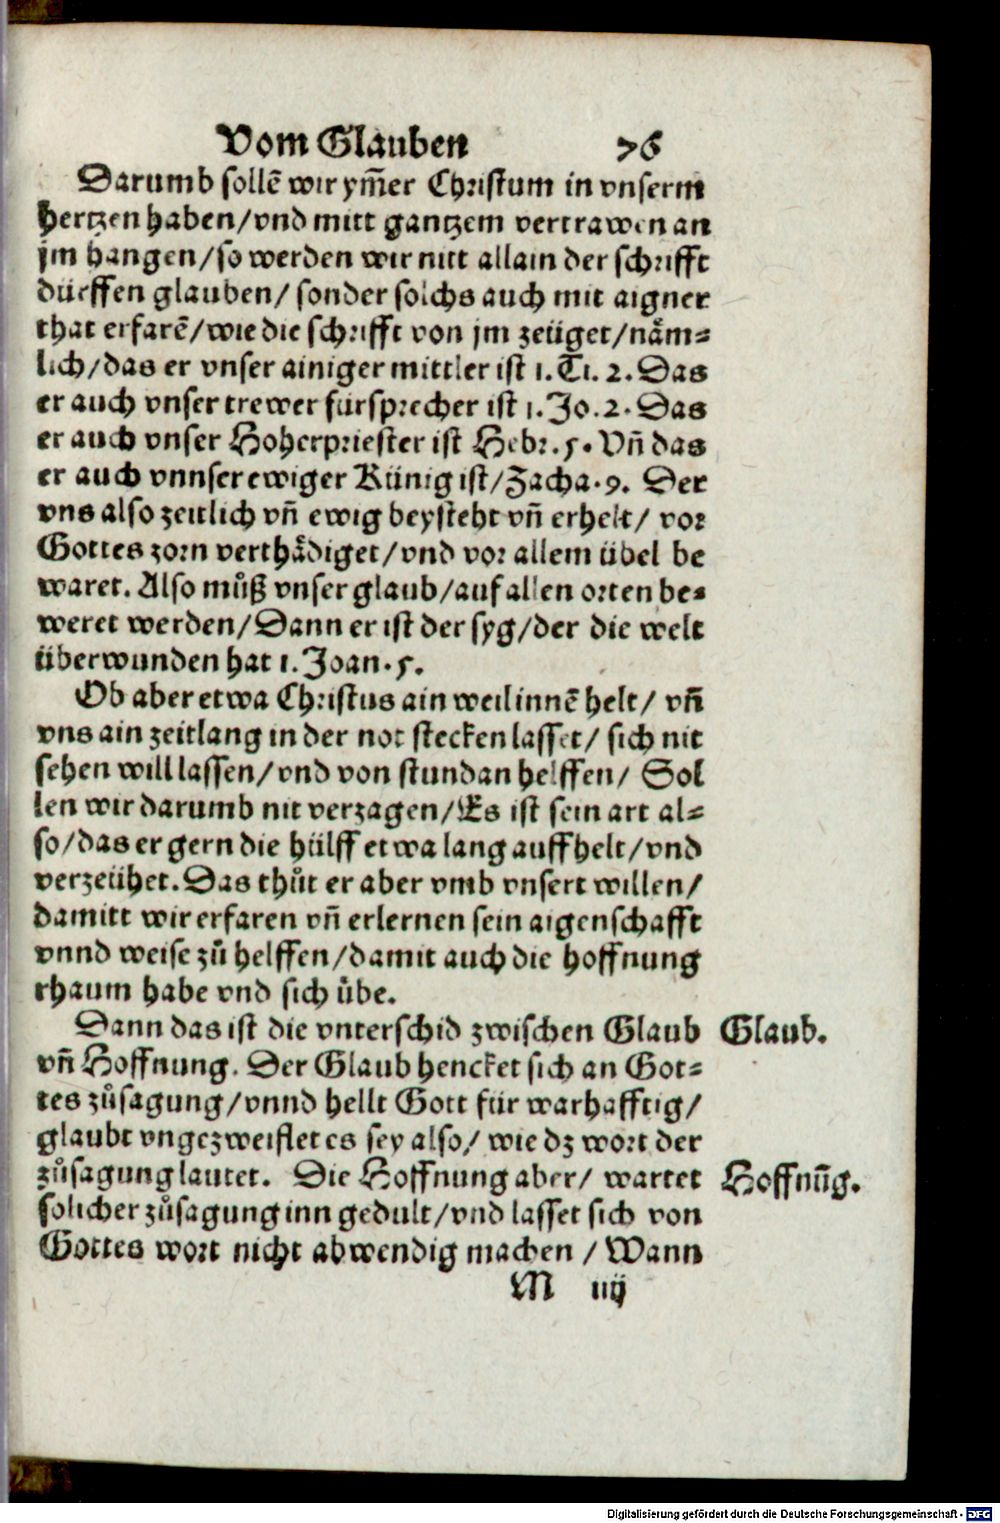 Vom Glauben 76
Darumb sollẽ wir ym̃er Christum in vnserm
hertzen haben/vnd mitt gantzem vertrawen an
jm hangen/so werden wir nitt allain der schrifft
dürffen glauben/ sonder solchs auch mit aigner
that erfarẽ/wie die schrifft von jm zeüget/nåm⸗
lich/das er vnser ainiger mittler ist 1.Ti. 2. Das
er auch vnser trewer fürsprecher ist 1.Jo.2. Das
er auch vnser Hoherpriester ist Hebr.5. Vñ das
er auch vnnser ewiger Künig ist/Zacha.9. Der
vns also zeitlich vñ ewig beysteht vñ erhelt/ vor
Gottes zorn verthådiget/vnd vor allem übel be
waret. Also můß vnser glaub/auf allen orten be⸗
weret werden/Dann er ist der syg/der die welt
überwunden hat 1.Joan.5.
Ob aber etwa Christus ain weil innẽ helt/ vñ
vns ain zeitlang in der not stecken lasset/ sich nit
sehen will lassen/vnd von stundan helffen/ Sol
len wir darumb nit verzagen/Es ist sein art al⸗
so/das er gern die hülff etwa lang auffhelt/vnd
verzeühet. Das thůt er aber vmb vnsert willen/
damitt wir erfaren vñ erlernen sein aigenschafft
vnnd weise zů helffen/damit auch die hoffnung
rhaum habe vnd sich übe.
Dann das ist die vnterschid zwischen Glaub Glaub.
vñ Hoffnung. Der Glaub hencket sich an Got⸗
tes zůsagung/vnnd hellt Gott für warhafftig/
glaubt vngezweiflet es sey also/ wie dz wort der
zůsagung lautet. Die Hoffnung aber/ wartet Hoffnũg.
solicher zůsagung inn gedult/vnd lasset sich von
Gottes wort nicht abwendig machen / Wann
M iiij
Digitalisierung gefördert durch die Deutsche Forschungsgemeinschaft - DFG